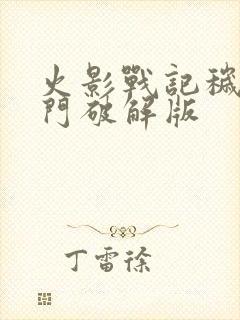 火影戰記穢
門破解版
丁雷徐